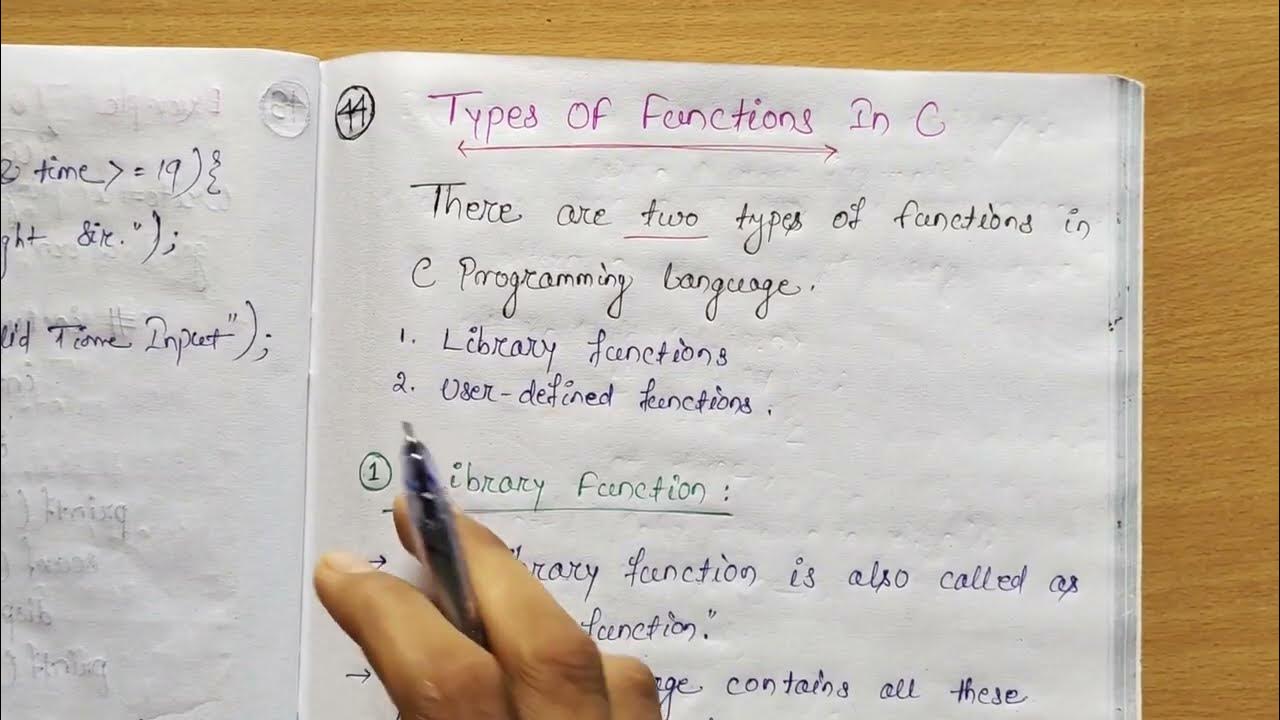 time >= 19){
ght Sir.");
lid Time Input");
44
Types Of Functions In C
There are two types of functions in
C Programming Language.
1. Library functions
2. User-defined functions.
1 Library Function:
→ function is also called as
function."
→ contains all these